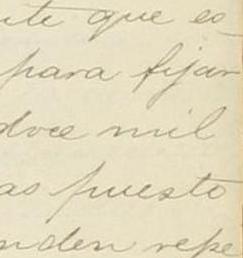 nte que es-
para fijar
doce mil
as puesto
nden repe